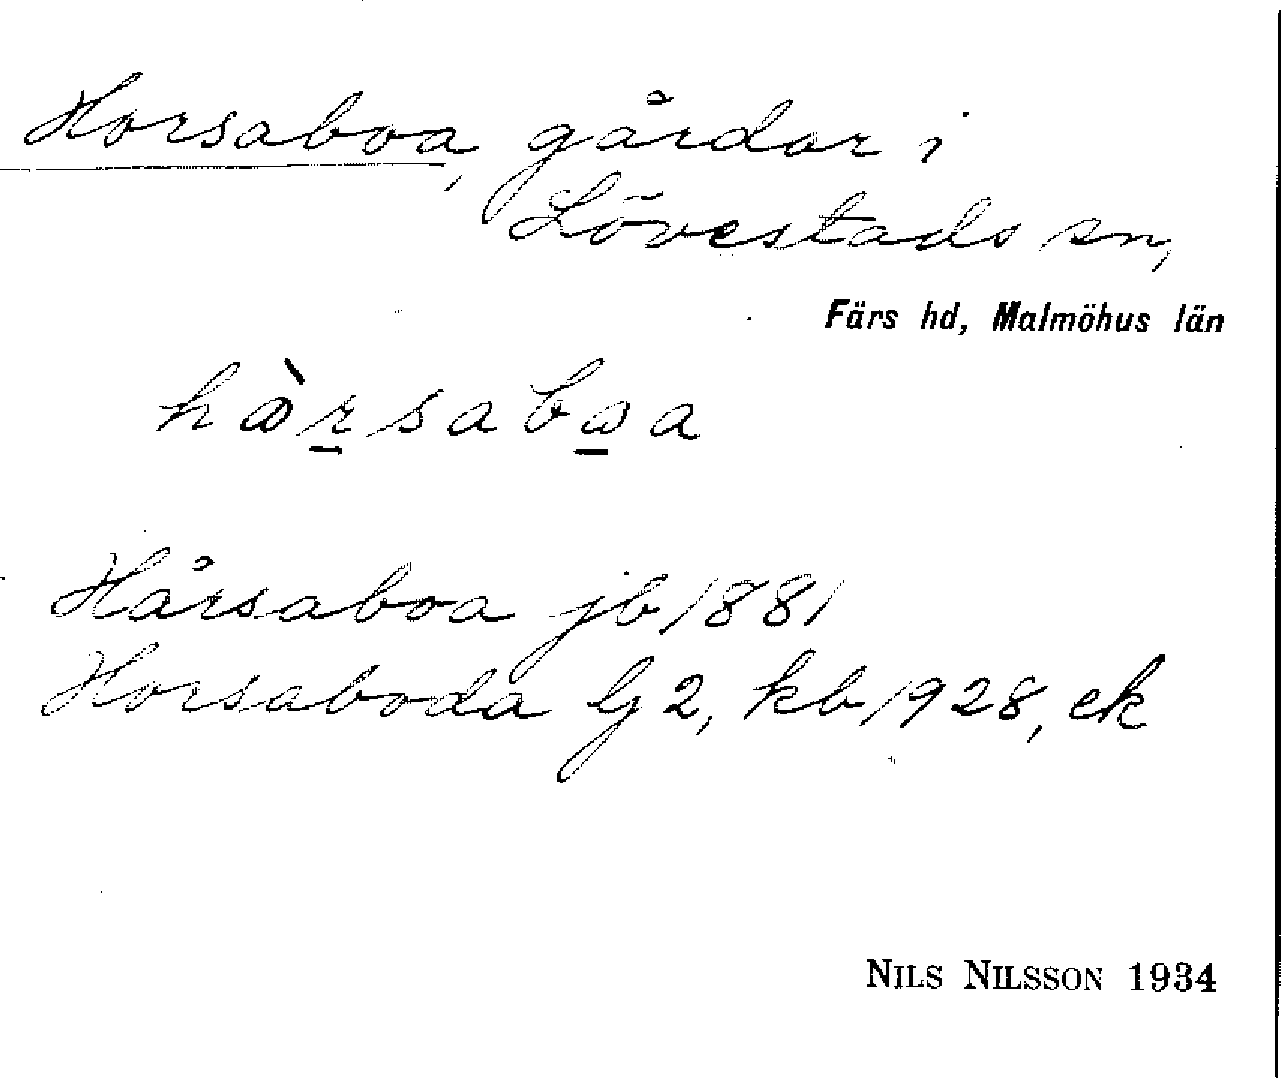 Horsaboa, gårdar i
Lövestads sn,
Färs hd, Malmöhus län
Hårsaboa jb 1881
Horsaboda Lj 2, kb 1928, ek
NILS NILSSON 1934